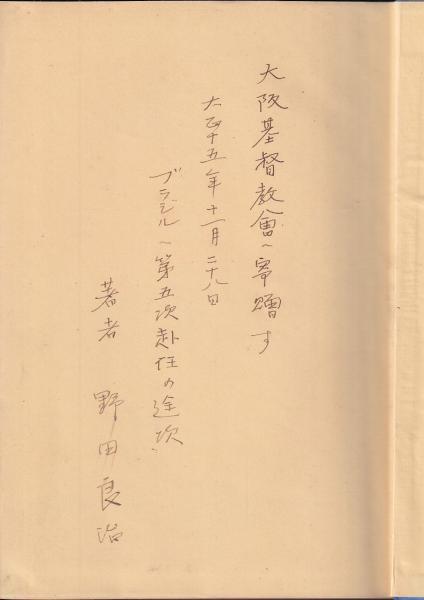 大阪基督教會へ寄贈す
大正十五年十一月二十八日
ブラジルへ第五次赴任の途次
著者 野田良治